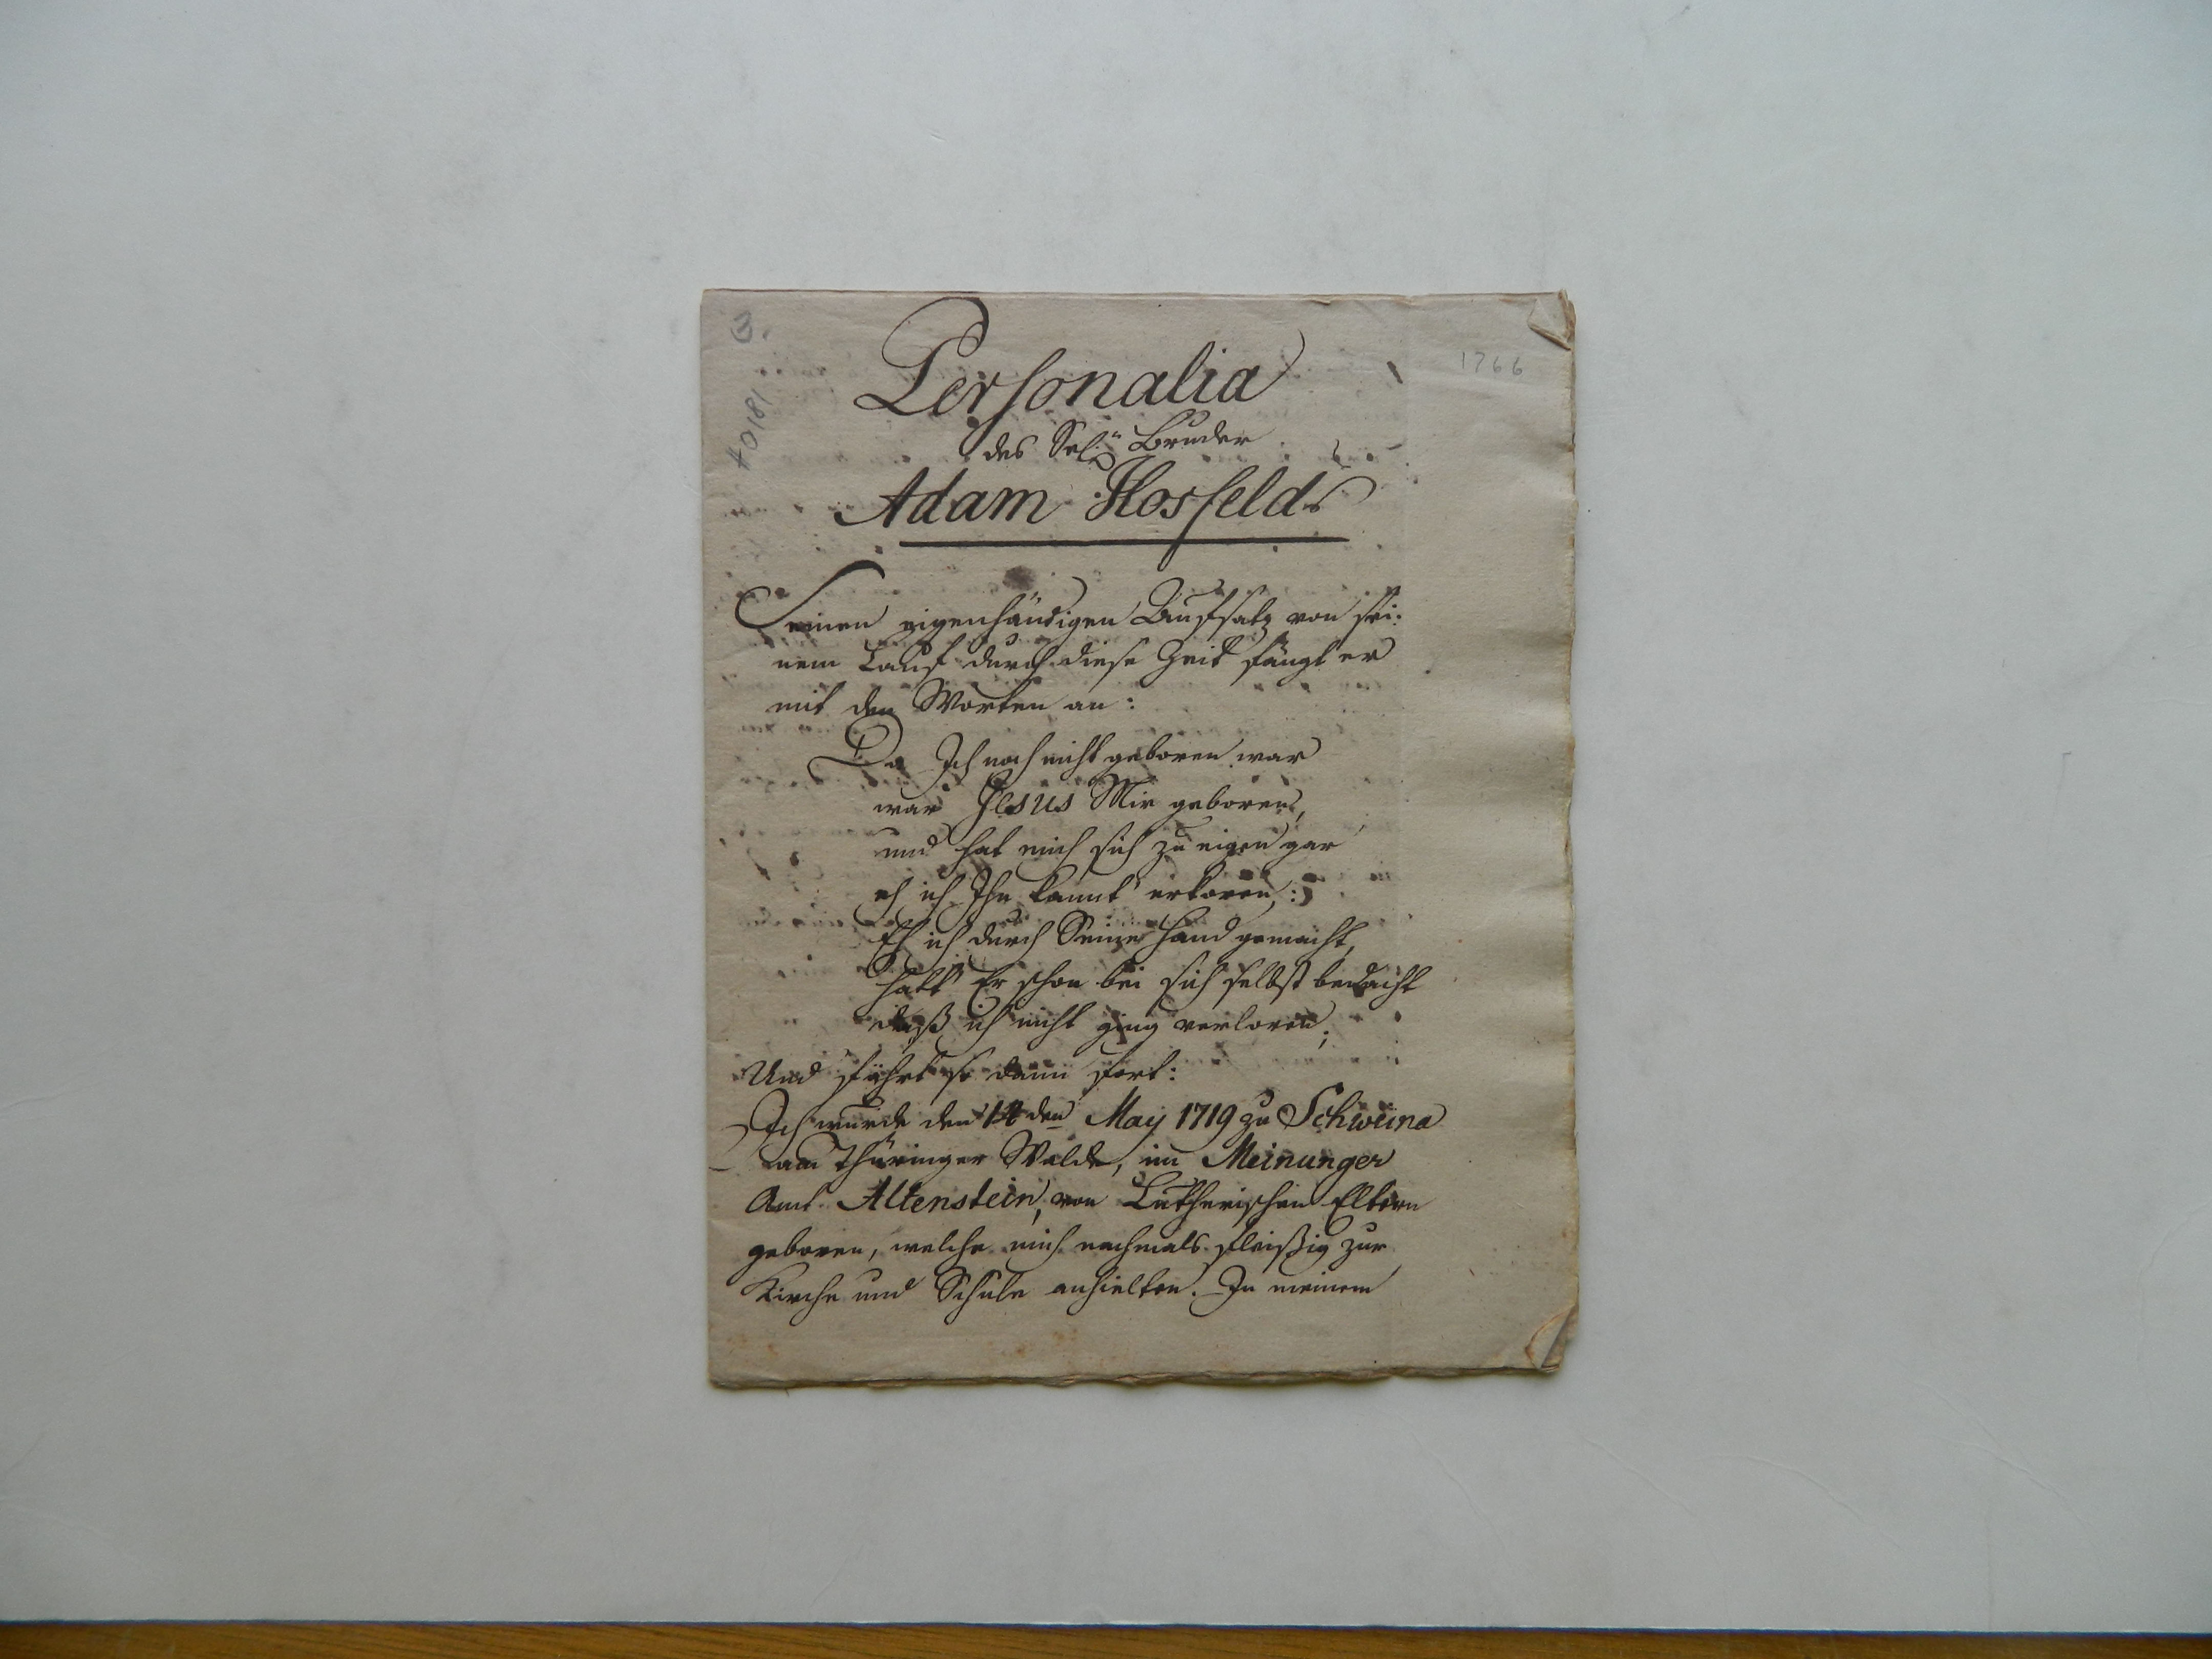 3.
1766
Personalia
des Sel.n Bruder
Adam Hosfelds
Seinen eigenhändigen Aufsatz von sei-
nem Lauf durch diese Zeit fängt er
mit den Worten an:
Da Ich noch nicht geboren war
war Jesus Mir geboren,
und hat mich sich zu eigen gar
eh ich Ihn kannt erkoren;
Eh ich durch Seine Hand gemacht,
hatt Er schon bei sich selbst bedacht
daß ich nicht ging verloren;
Und fährt so dann fort:
Ich wurde den 14den May 1719 zu Schweina
am Thüringer Walde, im Meinunger
Amt Altenstein, von Lutherischen Eltern
geboren, welche mich nachmals fleißig zur
Kirche und Schule anhielten. In meinem